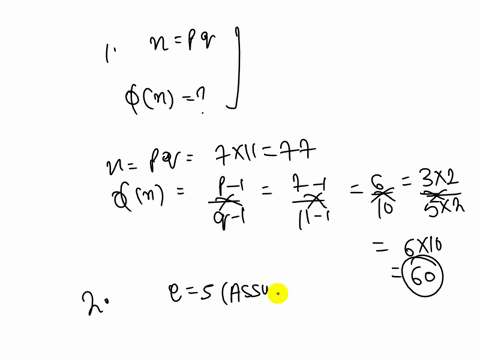 1. n = pq
φ(n) = ?
n = pq = 7×11 = 77
φ(n) = p-1/q-1 = 7-1/11-1 = 6/10 = 3×2/5×2
= 6×10
= 60
2. e = 5 (Assu